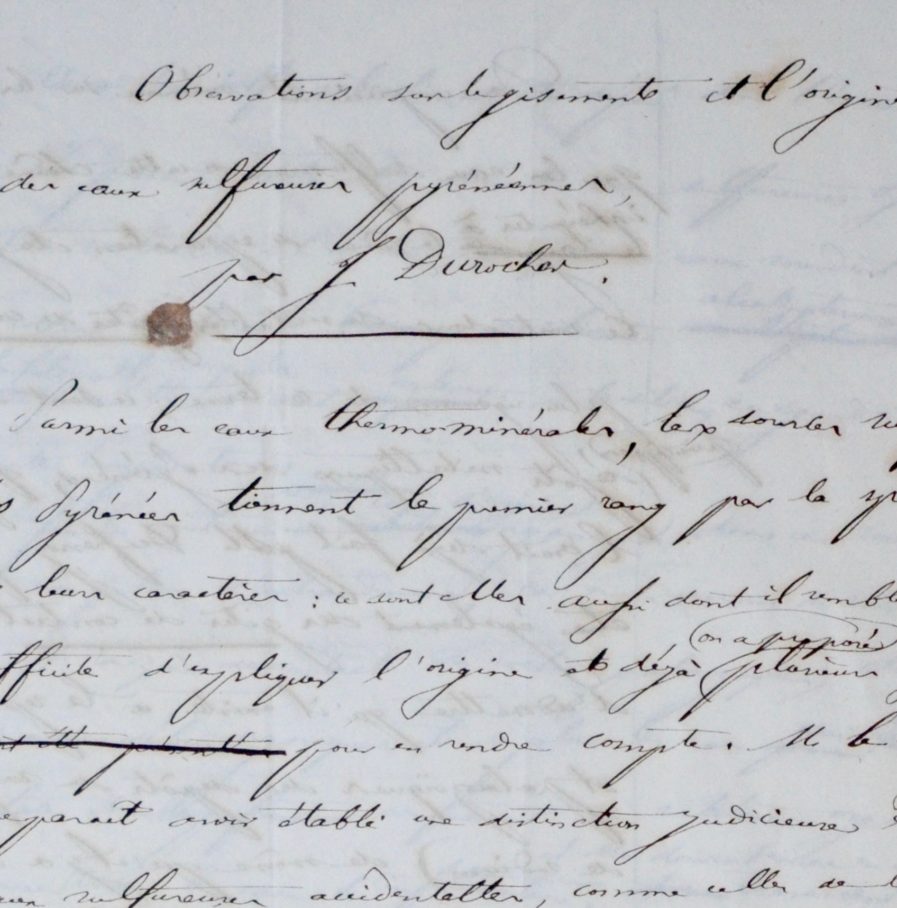 Observations sur le gisement et l'origine
des eaux sulfureuses pyrénéennes,
par J Durocher.
Parmi les eaux thermo-minérales, les sources
Pyrénées tiennent le premier rang par la
leurs caractères : ce sont elles aussi dont il semble
d'expliquer l'origine et déjà (on a proposé) plusieurs
pour en rendre compte. M le
parait avoir établi une distinction judicieuse
sulfureuses accidentelles, comme celles de